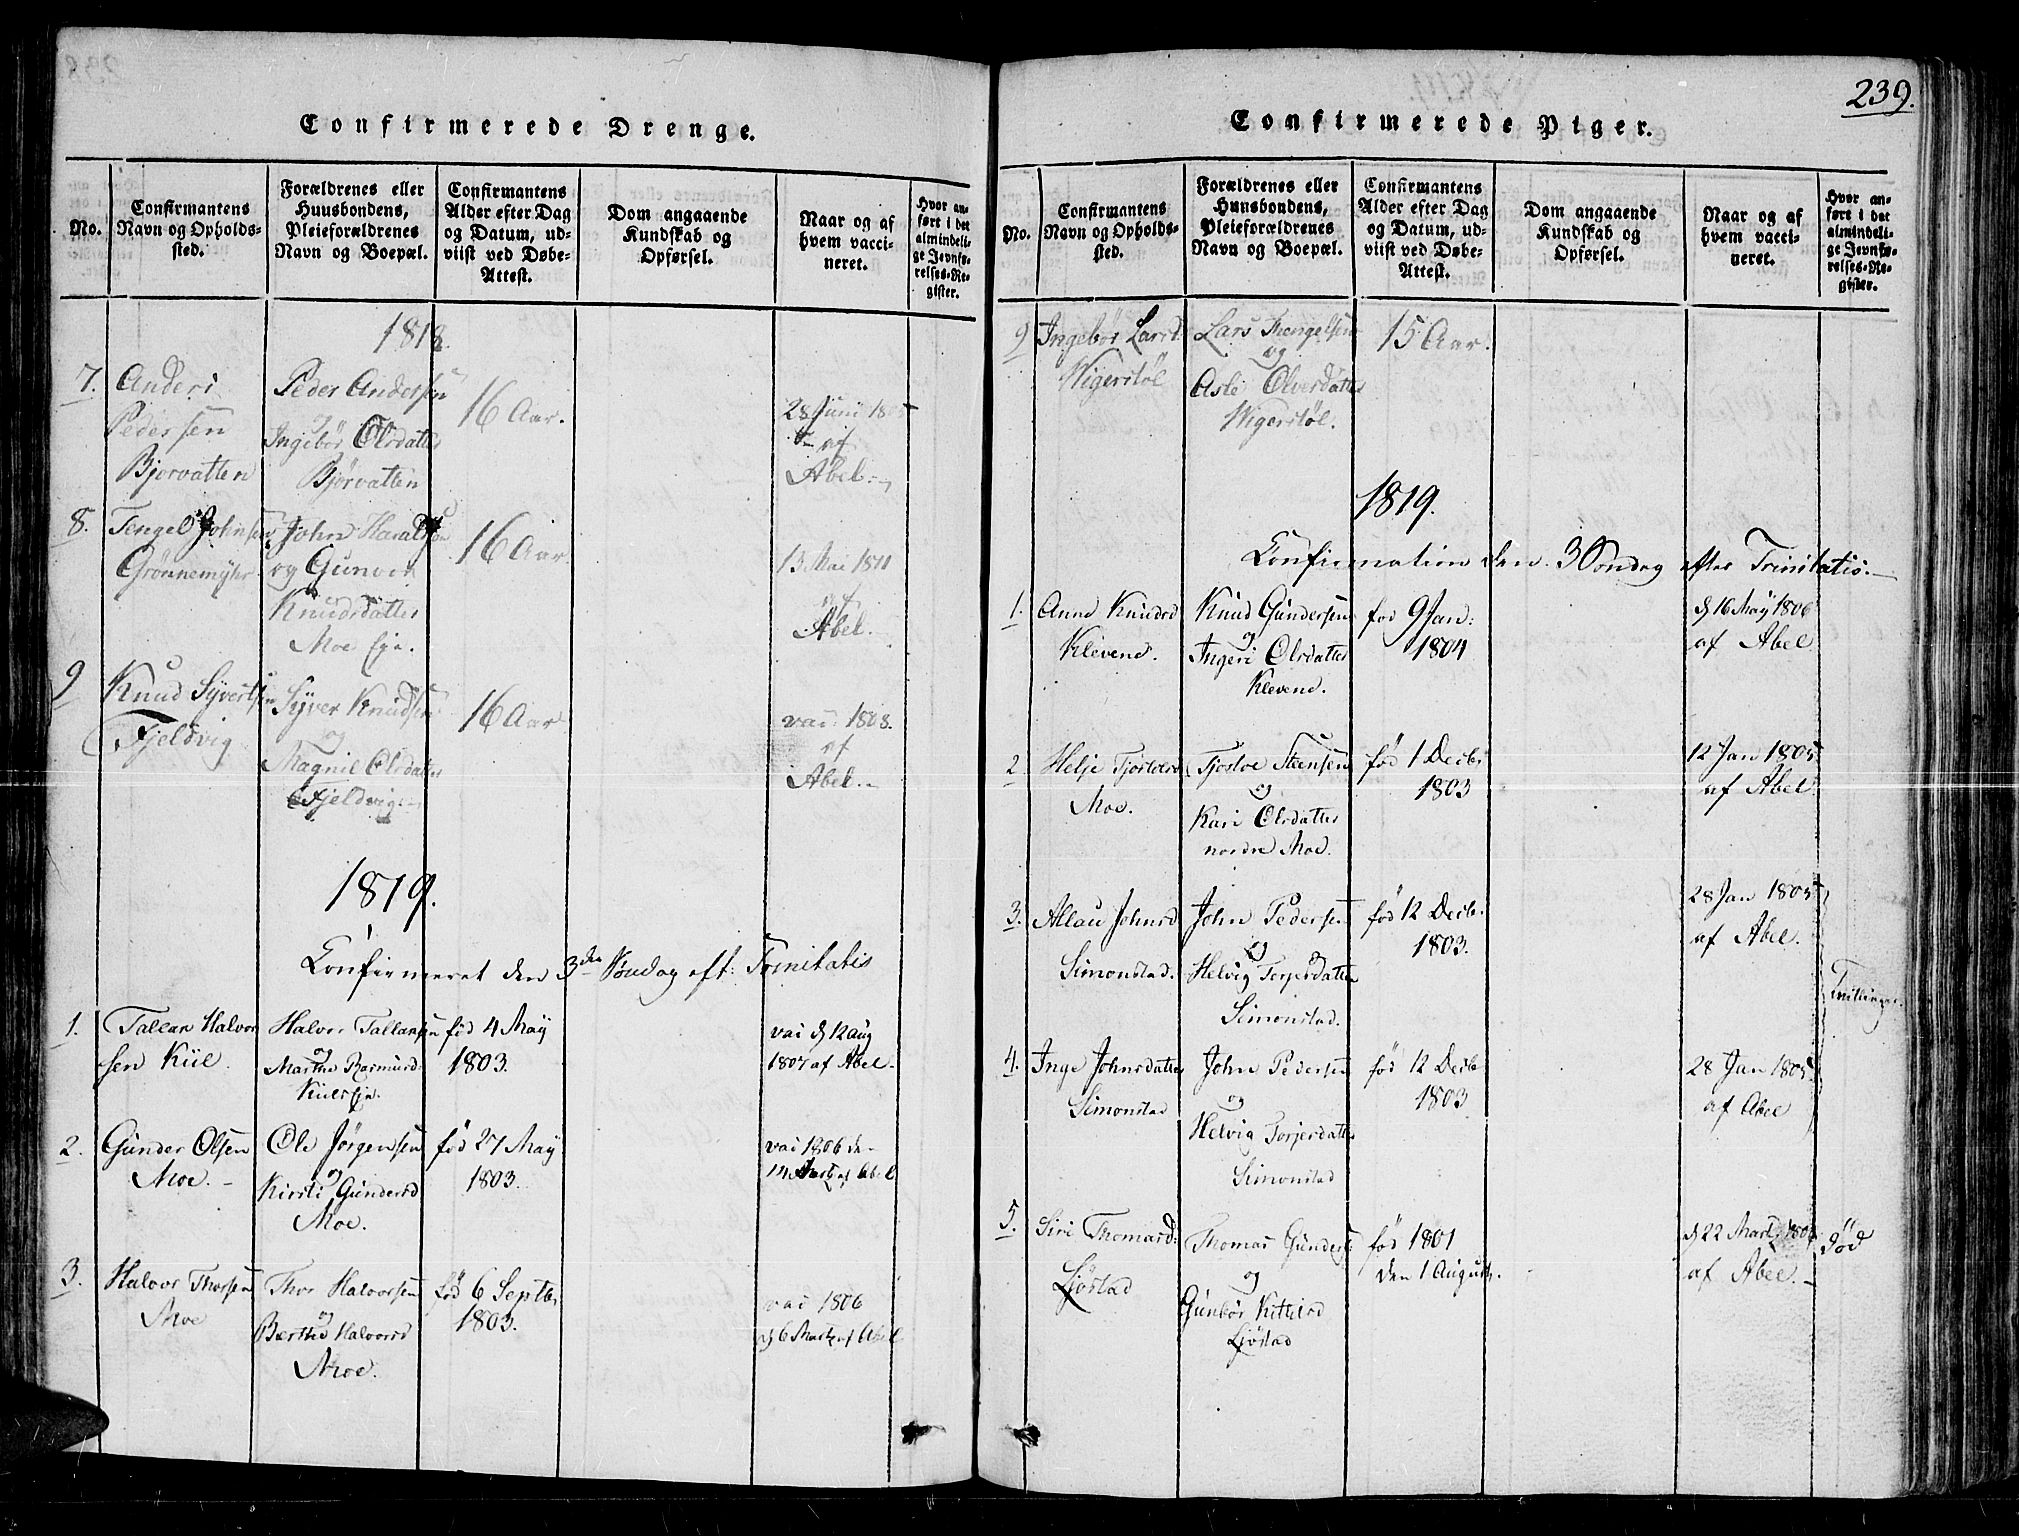 Confirmerede Drenge.
No.
Confirmantens
Navn og Opholds-
sted.
Forældrenes eller
Huusbondens,
Pleieforældrenes
Navn og Boepæl.
Confirmantens
Alder efter Dag
og Datum, ud-
viist ved Døbe-
Attest.
Dom angaaende
Kundskab og
Opførsel.
Naar og af
hvem vacci-
neret.
Hvor an-
ført i det
almindeli-
ge Jevnfø-
relses-Re-
gister.
1818.
7.
Anders
Pedersen
Bjorvatten
Peder Andersen
og
Ingebör Olsdatter
Bjørvatten
16 Aar.
28 Juni 1805
af
Abel.
8.
Tengel Johnsen
Grønnemyhr
John Haralsen
og Gunvor
Knudsdatter
Moe Eje.
16 Aar.
13 Mai 1811
af
Abel.
9
Knud Syvertsen
Fjeldvig
Syver Knudsen
og
Magnil Olsdatter
Fjeldvig.
16 Aar
vac: 1808.
af
Abel.
1819.
Confirmeret den 3die Søndag eft: Trinitatis
1.
Tallan Halvor
sen Kiil
Halvor Tallansen
og
Marthe Rasmusd:
Kiils Eje.
fød 4 May
1803.
vac d 12 Aug
1807 af Abel.
2.
Gunder Olsen
Moe.
Ole Jörgensen
og
Kirsti Gundersd
Moe.
fød 27 May
1803.
vac 1806 den
14 Marts af Abel
3.
Halvor Thorsen
Moe
Thor Halvorsen
og
Berthe Halvorsd
Moe.
fød 6 Septbr
1803.
vac 1806
d 6 Marts af Abel
239.
Confirmerede Piger.
No.
Confirmantens
Navn og Opholds-
sted.
Forældrenes eller
Huusbondens,
Pleieforældrenes
Navn og Boepæl.
Confirmantens
Alder efter Dag
og Datum, ud-
viist ved Døbe-
Attest.
Dom angaaende
Kundskab og
Opførsel.
Naar og af
hvem vacci-
neret.
Hvor an-
ført i det
almindeli-
ge Jevnfø-
relses-Re-
gister.
9
Ingebör Larsd.
Wigerstöl
Lars Tengelsen
og
Asle Olversdatter
Wigerstöl.
15 Aar.
1819.
Confirmation den 3 Söndag efter Trinitatis.
1.
Anne Knudsd
Klevene.
Knud Gundersen
og
Ingeri Olsdatter
Klevene.
fød 9 Jan:
1804
d 16 May 1806
af Abel
2
Helje Tjostolvsd
Moe.
Tjostov Steensen
og
Kari Olsdatter
nordre Moe.
fød 1 Decbr
1803
12 Jan 1805
af Abel
3.
Allau Johnsd
Simonstad.
John Pedersen
og
Helvig Torjersdatter
Simonstad.
fød 12 Decbr.
1803.
28 Jan 1805
af Abel.
Tvillinger.
4.
Inge Johnsdatter
Simonstad
John Pedersen
og
Helvig Torjersdatter
Simonstad
fød 12 Decbr
1803
28 Jan 1805
af Abel
5.
Siri Thomasd:
Ljöstad
Thomas Gunders:
og
Gunbör Kittilsd
Ljöstad
fød 1801
den 1 August.
d 22 Marts 1804
af Abel.
död